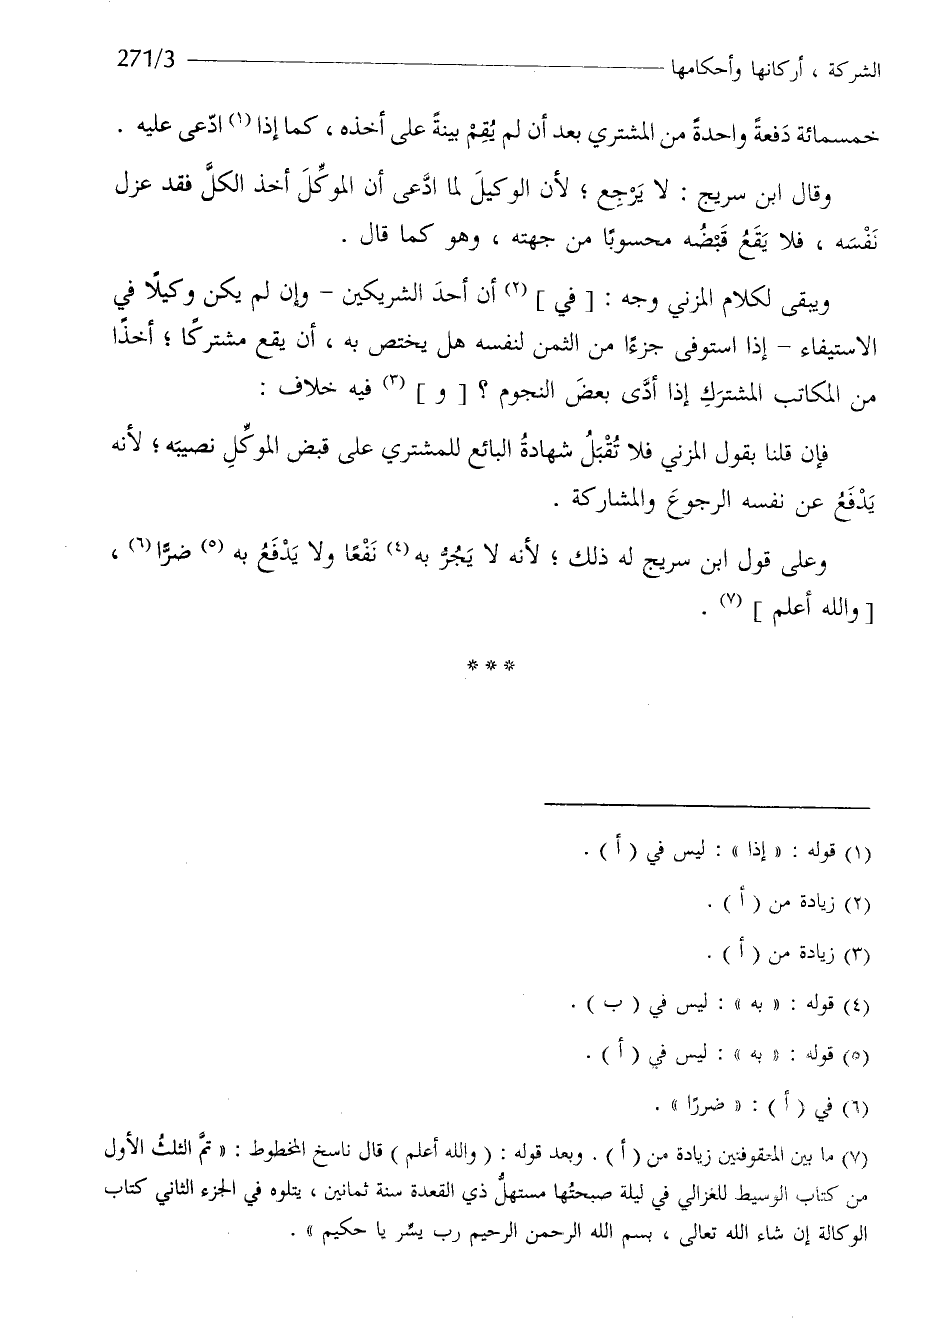 الشركة ، أركانها وأحكامها 271/3
خمسمائة دَفعةً واحدةً من المشتري بعد أن لم يُقِمْ بينةً على أخذه ، كما إذا (١) ادّعى عليه .
وقال ابن سريج : لا يَرْجِع ؛ لأن الوكيلَ لما ادَّعى أن الموكِّلَ أخذ الكلَّ فقد عزل
نَفْسَه ، فلا يَقَعُ قَبْضُه محسوبًا من جهته ، وهو كما قال .
ويبقى لكلام المزني وجه : [ في ] (٢) أن أحدَ الشريكين – وإن لم يكن وكيلًا في
الاستيفاء – إذا استوفى جزءًا من الثمن لنفسه هل يختص به ، أن يقع مشتركًا ؛ أخذًا
من المكاتب المشترَكِ إذا أدَّى بعضَ النجوم ؟ [ و ] (٣) فيه خلاف :
فإن قلنا بقول المزني فلا تُقْبَلُ شهادةُ البائع للمشتري على قبض الموكِّلِ نصيبَه ؛ لأنه
يَدْفَعُ عن نفسه الرجوعَ والمشاركة .
وعلى قول ابن سريج له ذلك ؛ لأنه لا يَجُرُّ به (٤) نَفْعًا ولا يَدْفَعُ به (٥) ضرًّا (٦) ،
[ والله أعلم ] (٧) .
* * *
(١) قوله : « إذا » : ليس في ( أ ) .
(٢) زيادة من ( أ ) .
(٣) زيادة من ( أ ) .
(٤) قوله : « به » : ليس في ( ب ) .
(٥) قوله : « به » : ليس في ( أ ) .
(٦) في ( أ ) : « ضررًا » .
(٧) ما بين المعقوفتين زيادة من ( أ ) . وبعد قوله : ( والله أعلم ) قال ناسخ المخطوط : « تمَّ الثلثُ الأول
من كتاب الوسيط للغزالي في ليلة صبحتُها مستهلُّ ذي القعدة سنة ثمانين ، يتلوه في الجزء الثاني كتاب
الوكالة إن شاء الله تعالى ، بسم الله الرحمن الرحيم رب يسِّر يا حكيم » .